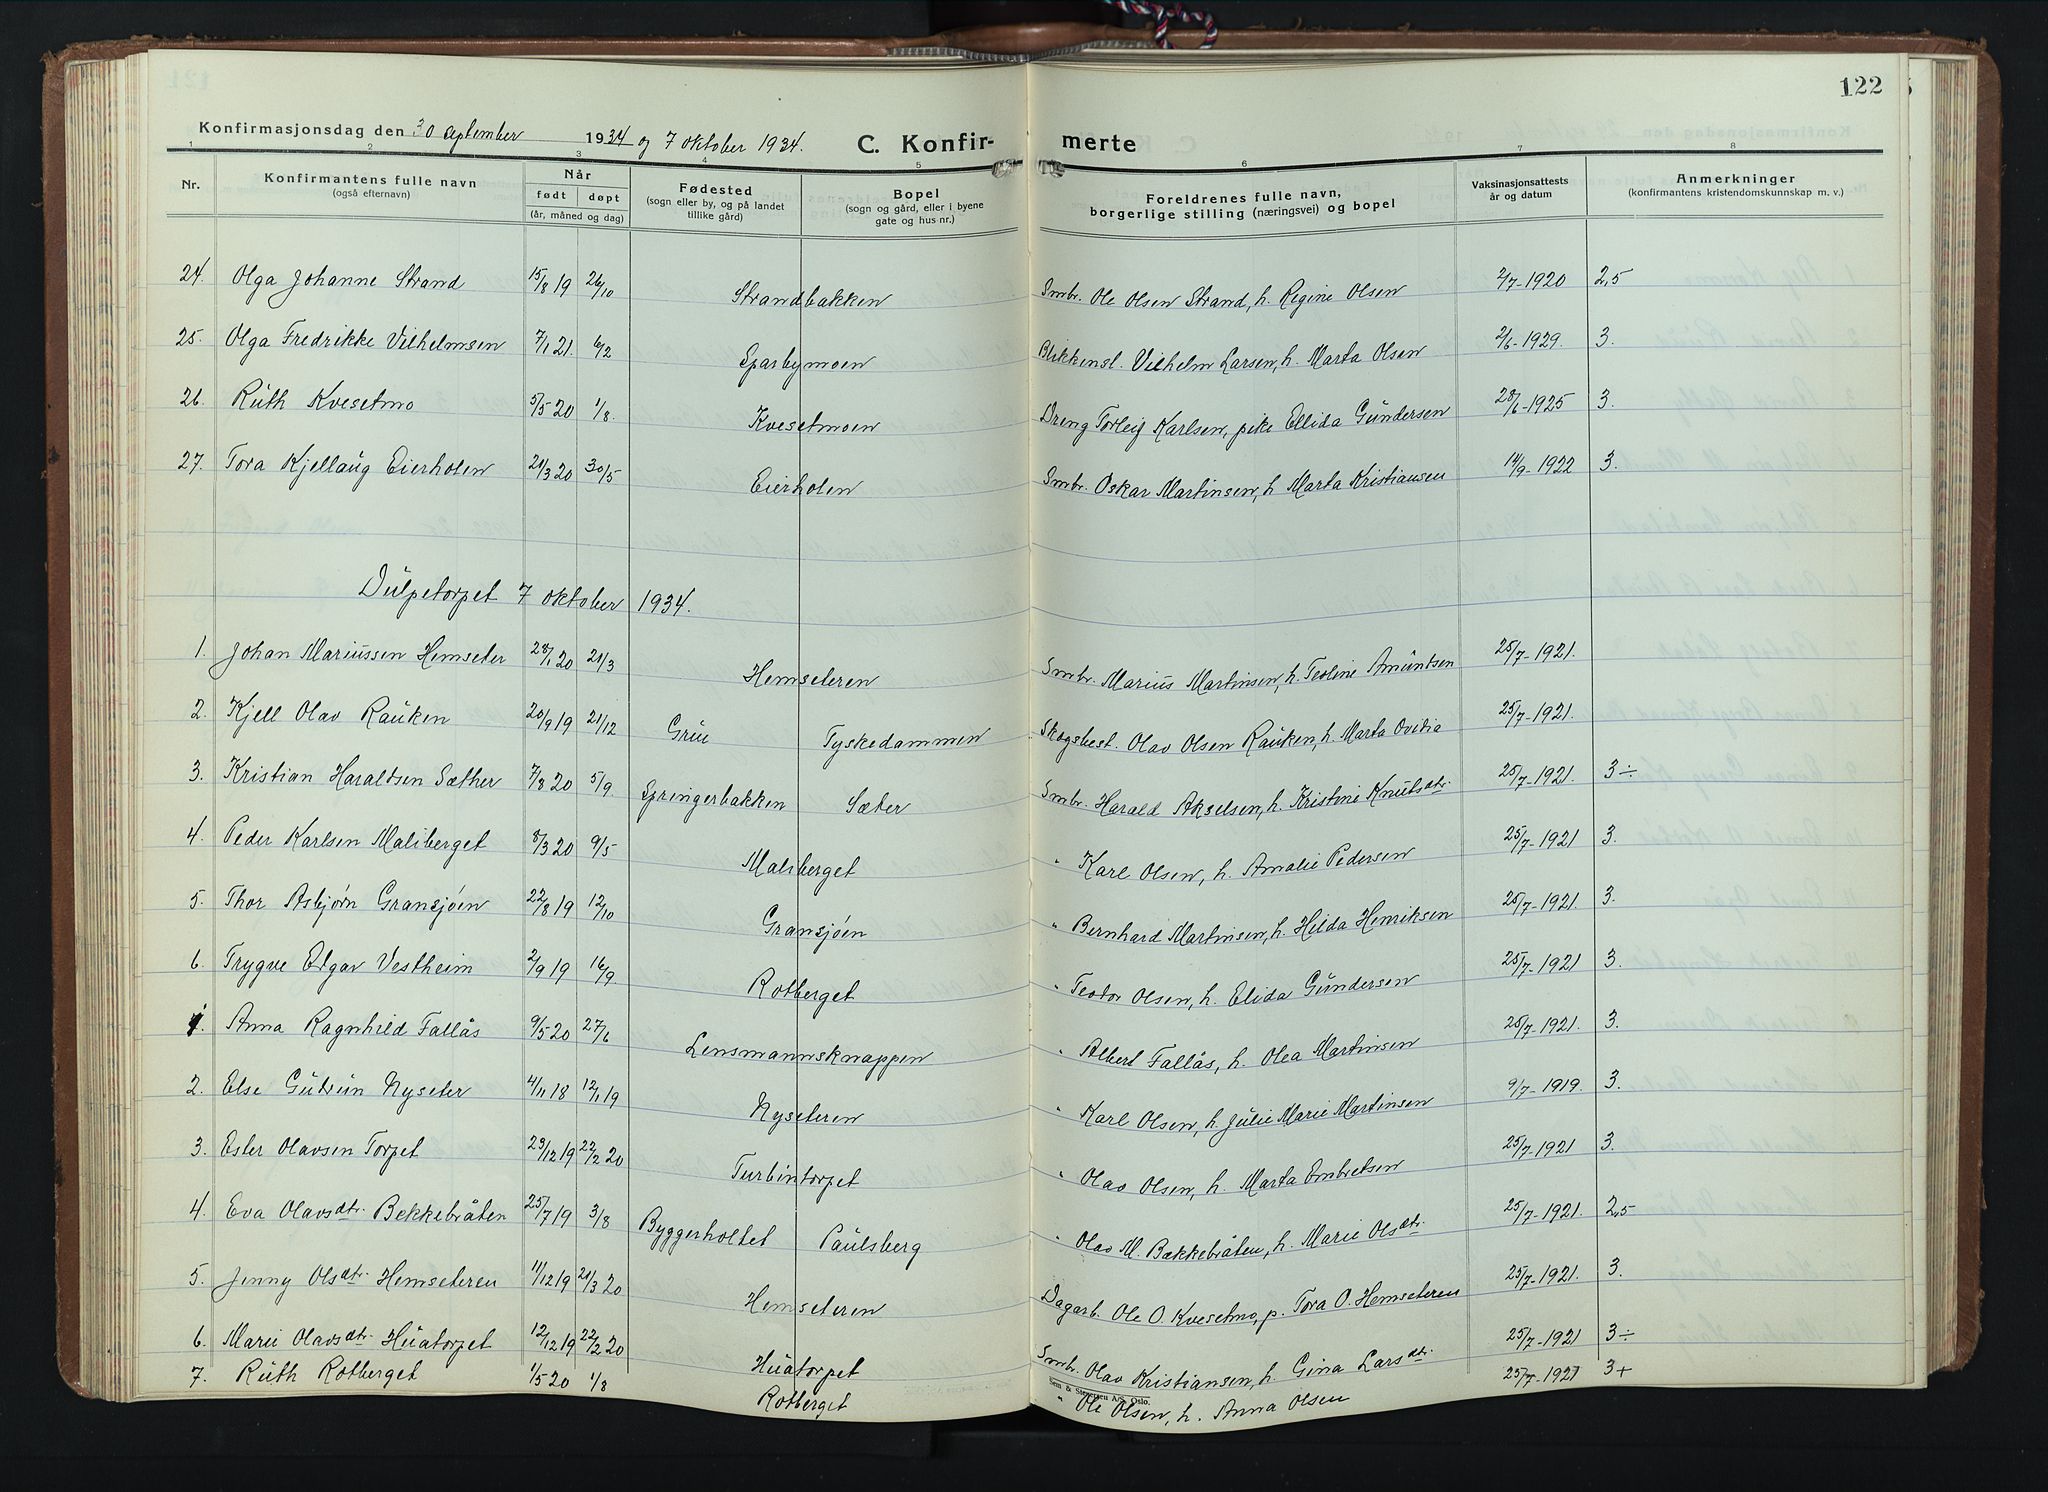 122
Konfirmasjonsdag den 30 september 1934 og 7 oktober 1934. C. Konfir- merte
1 2 3 4 5 6 7 8
Nr. Konfirmantens fulle navn (også efternavn) Når født døpt (år, måned og dag) Fødested (sogn eller by, og på landet tillike gård) Bopel (sogn og gård, eller i byene gate og hus nr.) Foreldrenes fulle navn, borgerlige stilling (næringsvei) og bopel Vaksinasjonsattests år og datum Anmerkninger (konfirmantens kristendomskunnskap m. v.)
24. Olga Johanne Strand 15/8 19 26/10 Strandbakken Smbr. Ole Olsen Strand, h. Regine Olsen 2/7-1920 2,5
25. Olga Fredrikke Vilhelmsen 7/1 21. 6/2 Sparbymoen Blikkensl. Vilhelm Larsen, h. Marta Olsen 2/6-1929. 3.
26. Ruth Kvesetmo 5/5 20 1/8. Kvesetmoen Dreng Torleif Karlsen, pike Ellida Gundersen 28/6-1925 3.
27. Tora Kjellaug Eierholen 21/3 20 30/5 Eierholen Smbr. Oskar Martinsen, h Marta Kristiansen 14/9-1922 3.
Dulpetorpet 7 oktober 1934.
1. Johan Mariussen Hemseter 28/1 20 21/3 Hemseteren Smbr. Marius Martinsen, h. Teoline Amundsen 25/7-1921.
2. Kjell Olav Rauken 20/9 19 21/12 Grue Tyskedammen Skogsbest. Olav Olsen Rauken, h. Marta Ovidia 25/7-1921.
3. Kristian Haraldsen Sæther 7/8 20 5/9. Springerbakken Sæter Smbr. Harald Akselsen, h. Kristine Knutsdtr. 25/7-1921. 3÷
4. Peder Karlsen Maliberget 8/3 20 9/5 Maliberget " Karl Olsen, h. Amalie Pedersen 25/7-1921 3.
5. Thor Asbjørn Gransjøen 22/8 19 12/10 Gransjøen " Bernhard Martinsen, h. Hilda Henriksen 25/7-1921. 3.
6. Trygve Edgar Vestheim 2/9 19 16/9 Rotberget " Teodor Olsen, h. Elida Gundersen 25/7-1921 3.
1. Anna Ragnhild Fallås 9/5 20 27/6 Lensmannsknappen " Albert Fallås, h. Olea Martinsen 25/7-1921. 3.
2. Else Gudrun Nyseter 4/11 18 12/1 19 Nyseteren " Karl Olsen, h. Julie Marie Martinsen 9/7-1919. 3.
3. Ester Olavsen Torpet 23/12 19 22/2 20 Turbintorpet " Olav Olsen, h. Marta Embretsen 25/7-1921 3.
4. Eva Olavsdtr. Bekkebråten 25/7 19 3/8 Byggerholtet Paulsberg " Olav M. Bækkebråten, h. Marie Olsdtr. 25/7-1921. 2,5
5. Jenny Olsdtr. Hemseteren 11/12 19 21/3 20 Hemseteren Dagarb. Ole O. Kvesetmo, p. Tora O. Hemseteren 25/7-1921. 3.
6. Marie Olavsdtr. Huatorpet 12/12 19 22/2 20 Huatorpet Smbr. Olav Kristiansen, h. Gina Larsdtr. 25/7-1921 3÷
7. Ruth Rotberget 1/5 20 1/8 Rotberget " Ole Olsen, h. Anna Olsen 25/7-1921 3+
Sem & Stenersen A/S, Oslo.